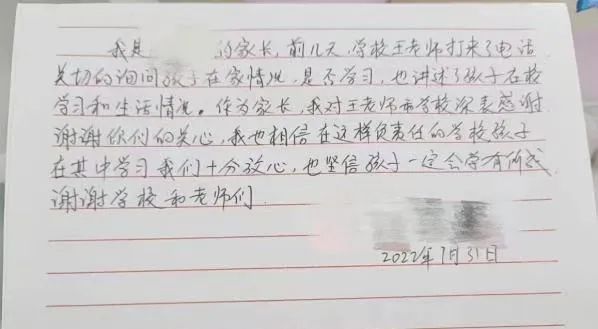 我是的家长，前几天，学校王老师打来了电话
关切的询问孩子在家情况，是否学习，也讲述了孩子在校
学习和生活情况。作为家长，我对王老师和学校深表感谢
谢谢你们的关心，我也相信在这样负责任的学校孩子
在其中学习我们十分放心，也坚信孩子一定会学有所成
谢谢学校和老师们
2022年7月31日